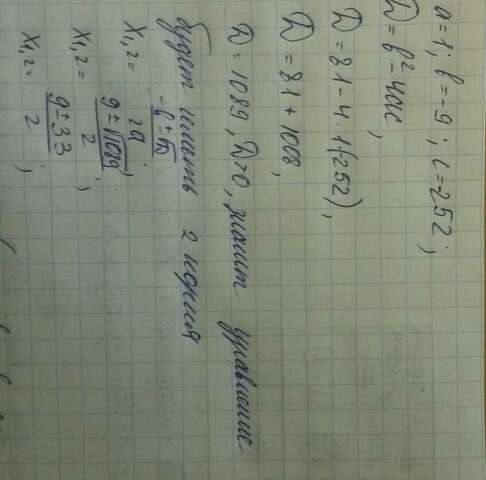 a=1; b=-9; c=-252;
D=b²-4ac,
D=81-4·1(-252),
D=81+1008,
D=1089, D>0, значит уравнение
будет иметь 2 корня
x₁,₂= -b±√D / 2a ;
x₁,₂= 9±√1089 / 2 ;
x₁,₂= 9±33 / 2 ;